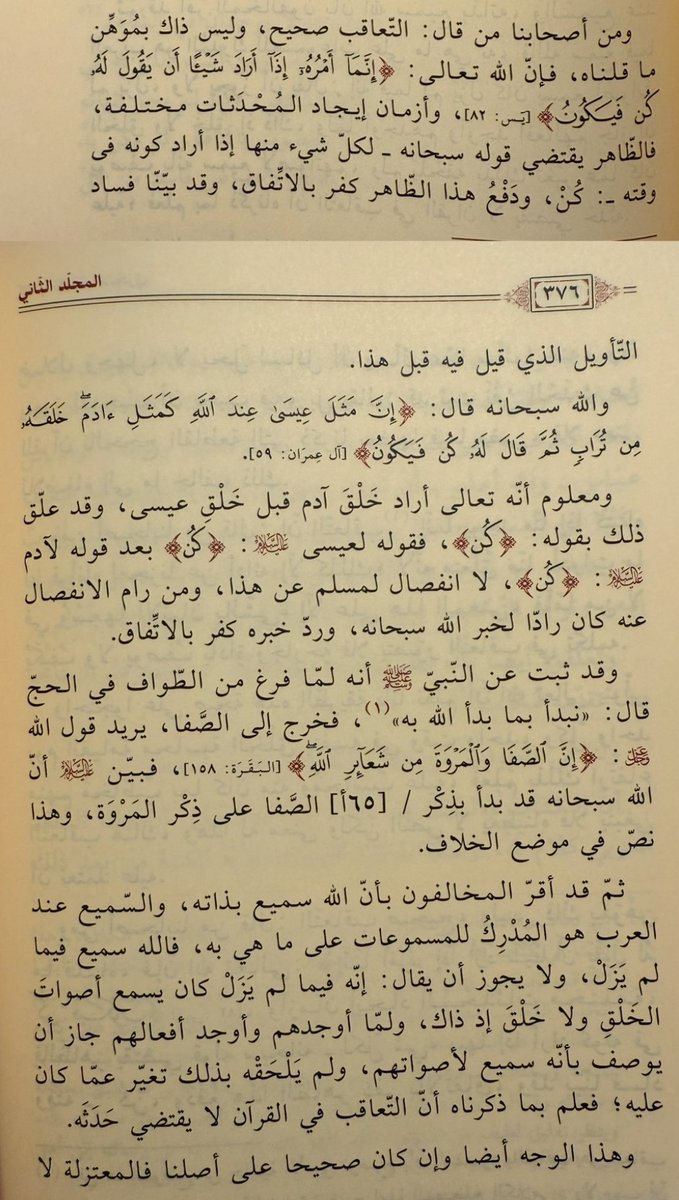 ومن أصحابنا من قال: التّعاقب صحيح، وليس ذاك بمُوَهِّن
ما قلناه، فإنّ الله تعالى: ﴿إِنَّمَآ أَمْرُهُۥٓ إِذَآ أَرَادَ شَيْـًٔا أَن يَقُولَ لَهُۥ
كُن فَيَكُونُ﴾ [يَس: ٨٢]، وأزمان إيجاد المُحْدَثات مختلفة،
فالظّاهر يقتضي قوله سبحانه ـ لكلّ شيء منها إذا أراد كونه فى
وقته ـ: كُنْ، ودَفْعُ هذا الظّاهر كفر بالاتِّفاق، وقد بيّنّا فساد
٣٧٦
المجلّد الثّاني
التّأويل الذي قيل فيه قبل هذا.
والله سبحانه قال: ﴿إِنَّ مَثَلَ عِيسَىٰ عِندَ ٱللَّهِ كَمَثَلِ ءَادَمَۖ خَلَقَهُۥ
مِن تُرَابٍ ثُمَّ قَالَ لَهُۥ كُن فَيَكُونُ﴾ [آل عِمرَان: ٥٩].
ومعلوم أنّه تعالى أراد خَلْقَ آدم قبل خَلْقِ عيسى، وقد علّق
ذلك بقوله: ﴿كُن﴾، فقوله لعيسى عليه السلام: ﴿كُن﴾ بعد قوله لآدم
عليه السلام: ﴿كُن﴾، لا انفصال لمسلم عن هذا، ومن رام الانفصال
عنه كان رادًّا لخبر الله سبحانه، وردّ خبره كفر بالاتِّفاق.
وقد ثبت عن النّبيّ ﷺ أنه لمّا فرغ من الطّواف في الحجّ
قال: «نبدأ بما بدأ الله به»(١)، فخرج إلى الصَّفا، يريد قول الله
عز وجل: ﴿إِنَّ ٱلصَّفَا وَٱلْمَرْوَةَ مِن شَعَآئِرِ ٱللَّهِۖ﴾ [البَقَرَة: ١٥٨]، فبيّن عليه السلام أنّ
الله سبحانه قد بدأ بذِكْر / [٦٥أ] الصَّفا على ذِكْر المَرْوَة، وهذا
نصّ في موضع الخلاف.
ثمّ قد أقرّ المخالفون بأنّ الله سميع بذاته، والسّميع عند
العرب هو المُدْرِكُ للمسموعات على ما هي به، فالله سميع فيما
لم يَزَلْ، ولا يجوز أن يقال: إنّه فيما لم يَزَلْ كان يسمع أصواتَ
الخَلْقِ ولا خَلْقَ إذ ذاك، ولمّا أوجدهم وأوجد أفعالهم جاز أن
يوصف بأنّه سميع لأصواتهم، ولم يَلْحَقْه بذلك تغيّر عمّا كان
عليه؛ فعلم بما ذكرناه أنّ التّعاقب في القرآن لا يقتضي حَدَثَه.
وهذا الوجه أيضا وإن كان صحيحا على أصلنا فالمعتزلة لا